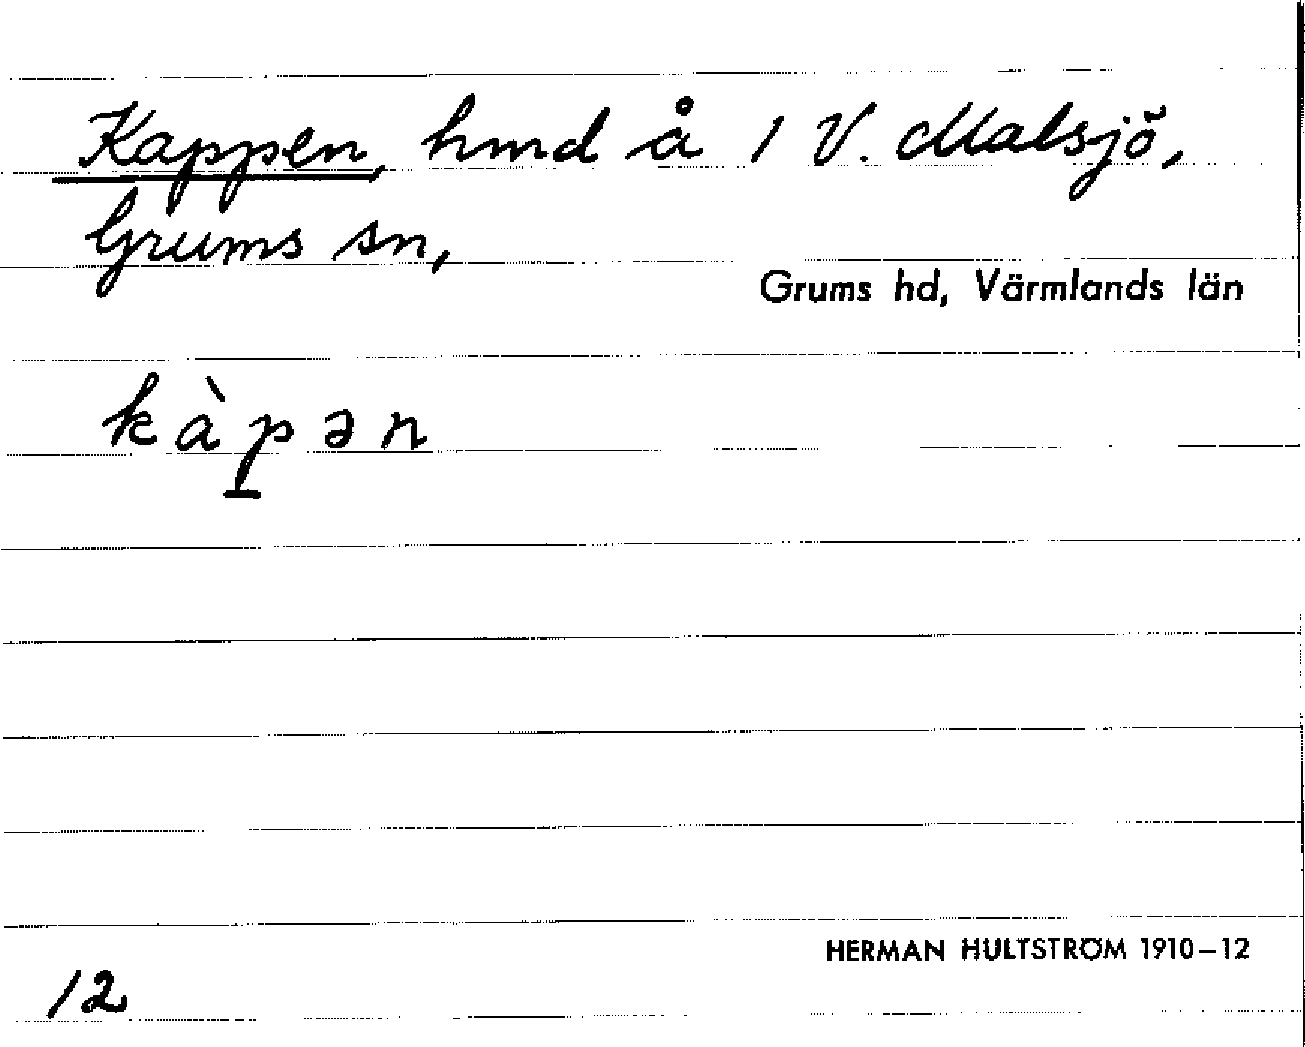 Kappen, hmd å 1 V. Malsjö,
Grums sn,
Grums hd, Värmlands län
kàpən
HERMAN HULTSTRÖM 1910–12
12